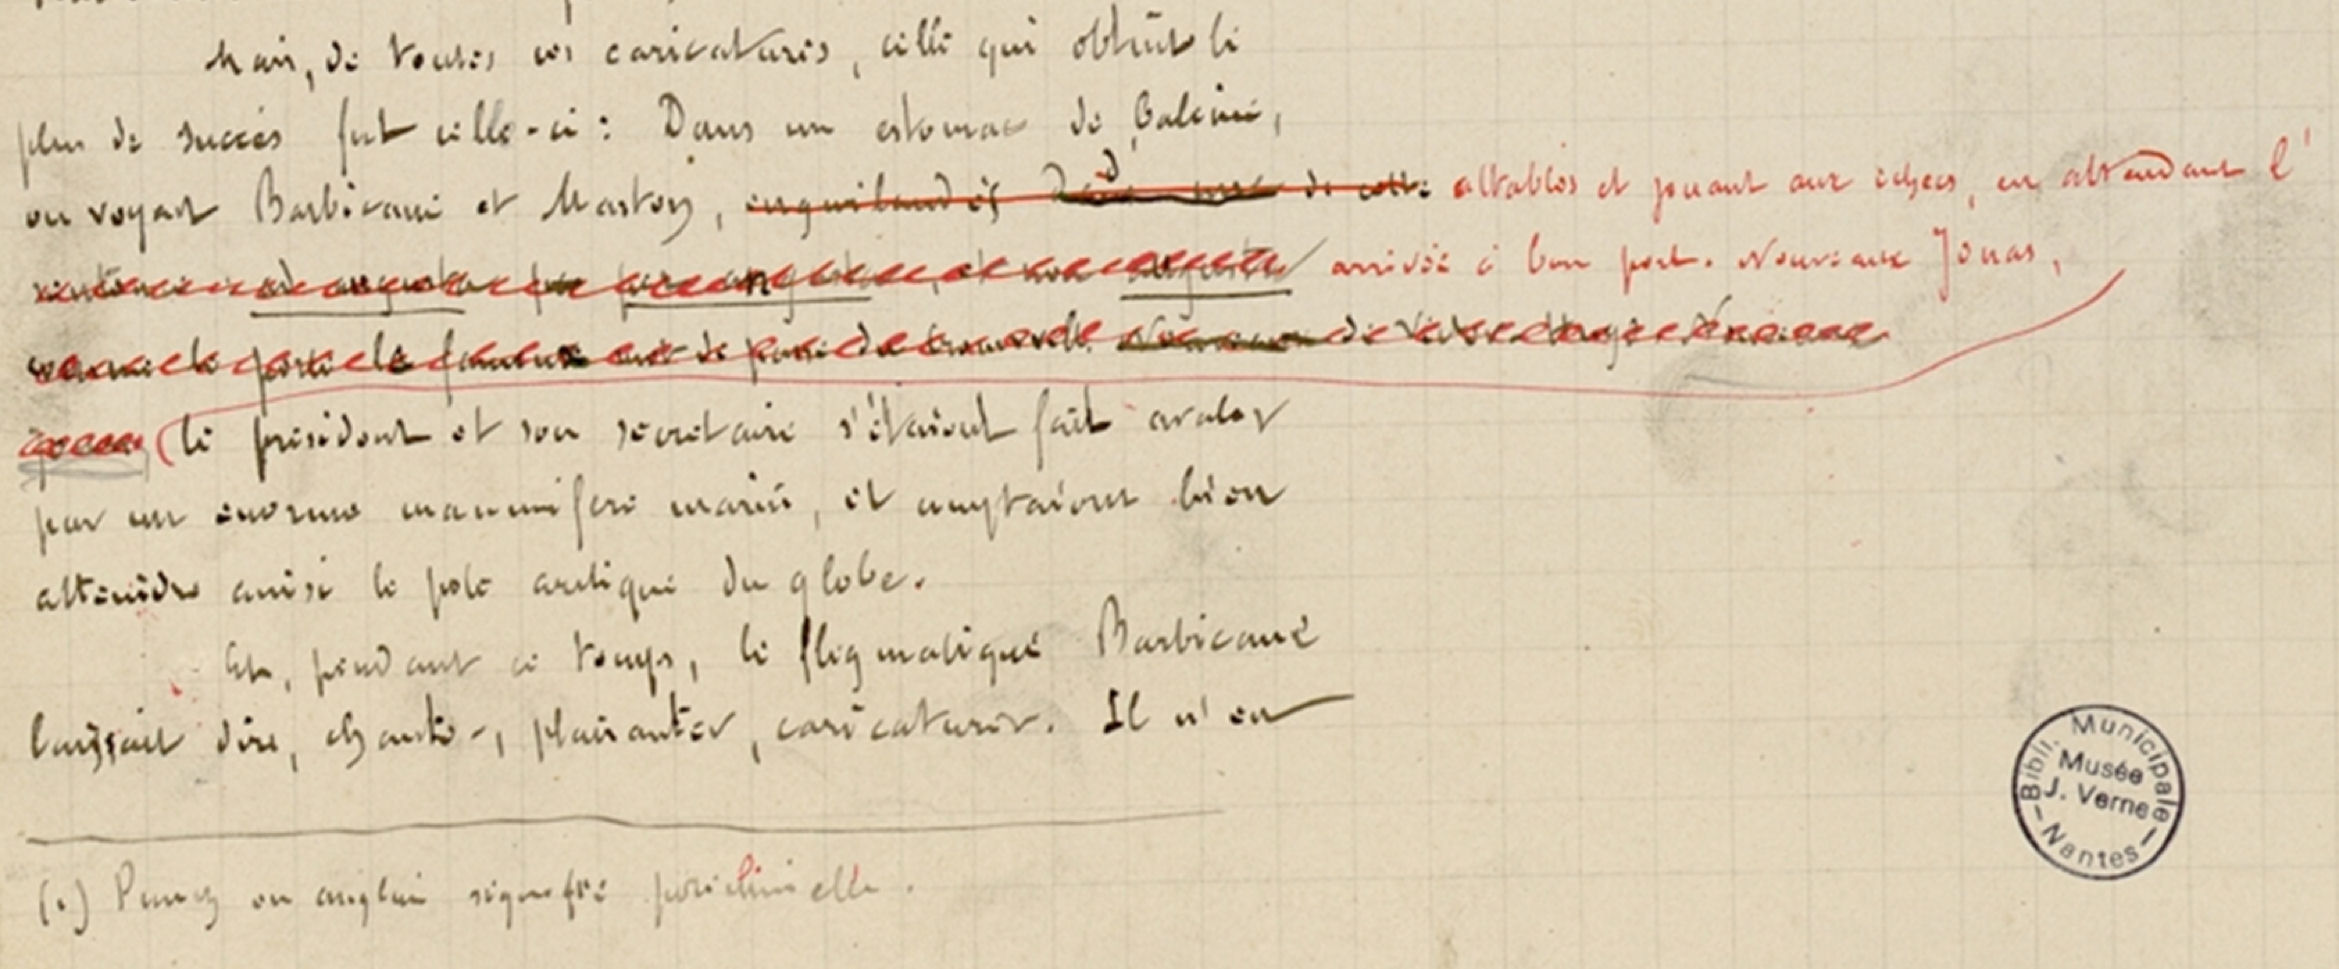 Mais, de toutes ces caricatures, celle qui obtint le
plus de succès fut celle-ci : Dans un estomac de baleine,
on voyait Barbicane et Maston, enguirlandés de cette attablés et jouant aux échecs, en attendant l'
arrivée à bon port. Nouveaux Jonas,
comme le porte le fameux mot de passe du
le président et son secrétaire s'étaient fait avaler
par un énorme mammifère marin, et comptaient bien
atteindre ainsi le pole arctique du globe.
Et, pendant ce temps, le flegmatique Barbicane
laissait dire, chanter, plaisanter, caricaturer. Il n'en
(1) Punch en anglais signifie polichinelle.
Bibli. Municipale
Musée
J. Verne
Nantes